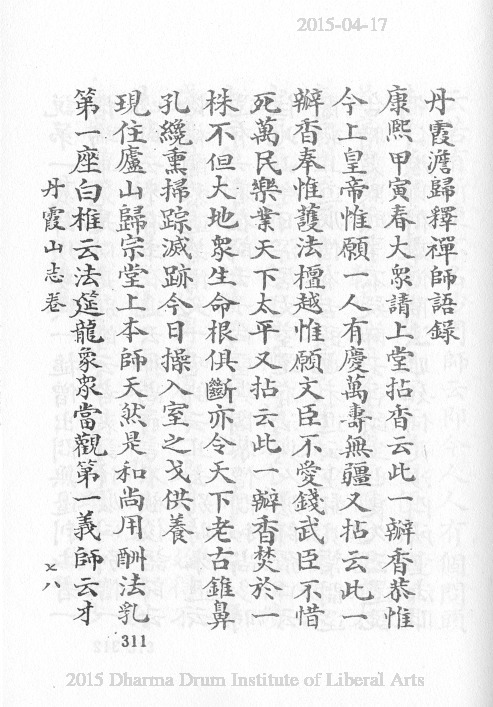 2015-04-17
丹霞澹歸釋禪師語錄
康熙甲寅春大衆請上堂拈香云此一瓣香恭惟
今上皇帝惟願一人有慶萬壽無疆又拈云此一
瓣香奉惟護法檀越惟願文臣不愛錢武臣不惜
死萬民樂業天下太平又拈云此一瓣香焚於一
株不但大地衆生命根俱斷亦令天下老古錐鼻
孔纔熏掃踪滅跡今日操入室之戈供養
現住廬山歸宗堂上本師天然是和尚用酬法乳
第一座白椎云法筵龍象衆當觀第一義師云才
丹霞山志卷
〤八
311
2015 Dharma Drum Institute of Liberal Arts